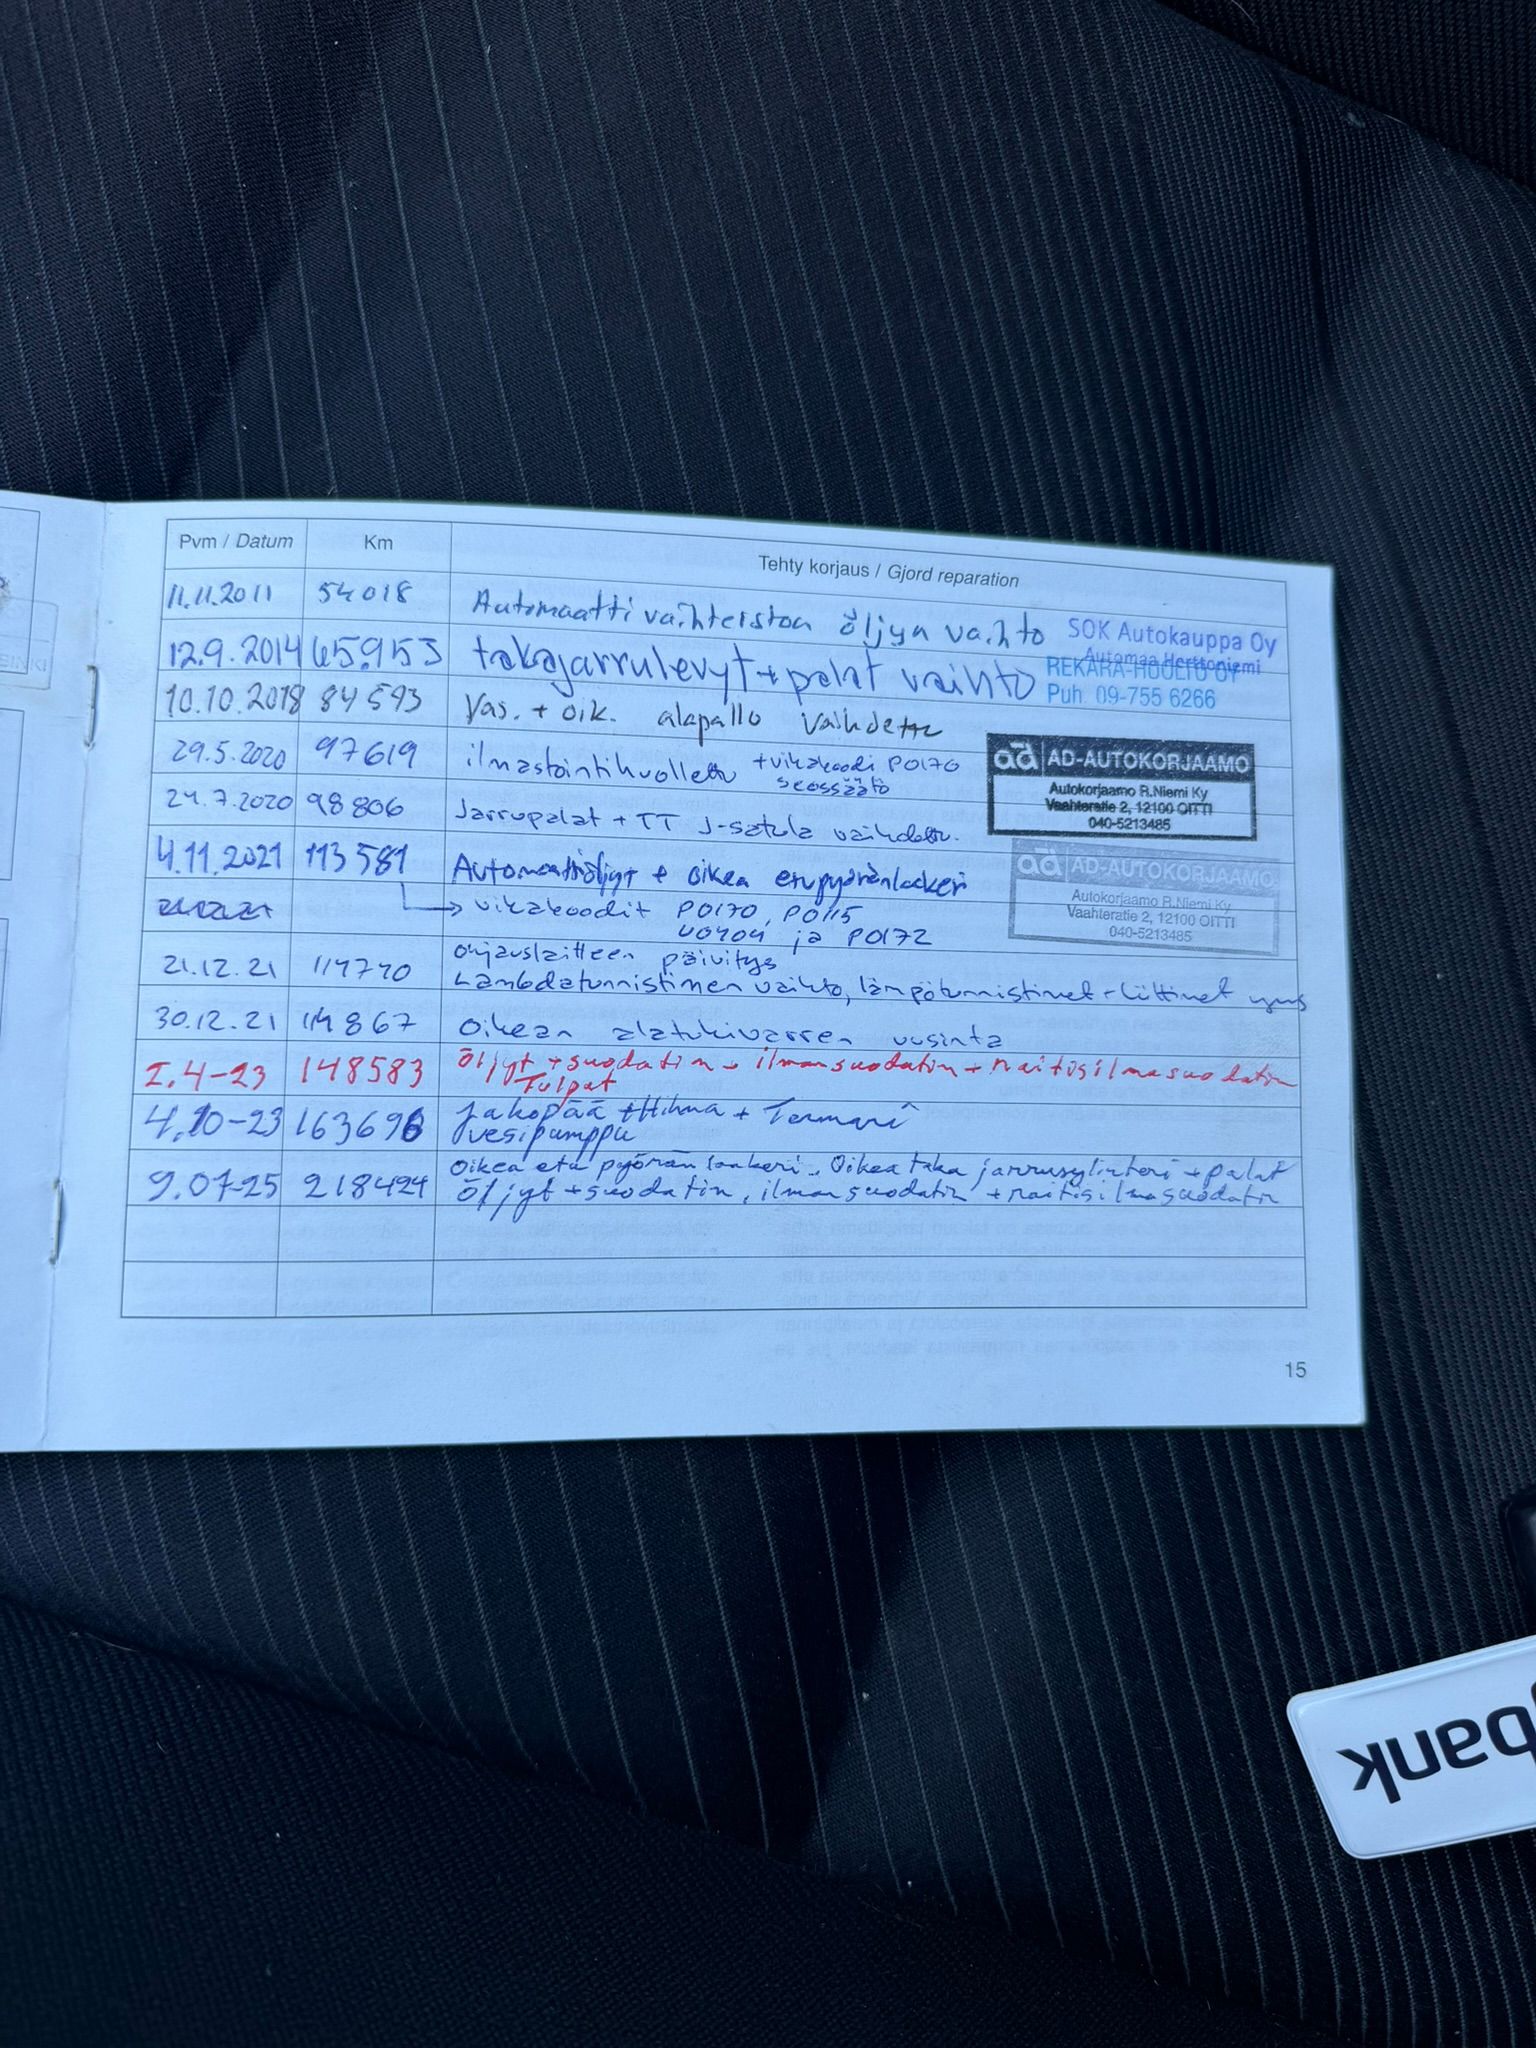 Pvm / Datum Km Tehty korjaus / Gjord reparation
11.11.2011 54018 Automaatti vaihteiston öljyn vaihto SOK Autokauppa Oy
Automaa Herttoniemi
12.9.2014 65953 takajarrulevyt + palat vaihto REKARA-HUOLTO OY
Puh. 09-755 6266
10.10.2018 84593 Vas. + oik. alapallo vaihdettu
29.5.2020 97619 ilmastointihuollettu + vikakoodi P0170
seossäätö
AD-AUTOKORJAAMO
Autokorjaamo R.Niemi Ky
Vaahteratie 2, 12100 OITTI
040-5213485
24.7.2020 98806 Jarrupalat + TT J-satula vaihdettu.
4.11.2021 113581 Automaattiöljyt + oikea etupyöränlaakeri
AD-AUTOKORJAAMO
Autokorjaamo R.Niemi Ky
Vaahteratie 2, 12100 OITTI
040-5213485
→ vikakoodit P0170, P0115
U0404 ja P0172
ohjauslaitteen päivitys
21.12.21 114740 Lambdatunnistimen vaihto, lämpötunnistimet + liittimet
30.12.21 114867 Oikean alatukivarren uusinta
I.4-23 148583 Öljyt + suodatin + ilmansuodatin + raitisilmasuodatin
Tulpat
4.10-23 163696 Jakopää + Hihna +
vesipumppu
9.07-25 218424 Oikea eta pyörän laakeri. Oikea taka jarrusylinteri + palat
Öljyt + suodatin, ilmansuodatin + raitisilmasuodatin
15
bank